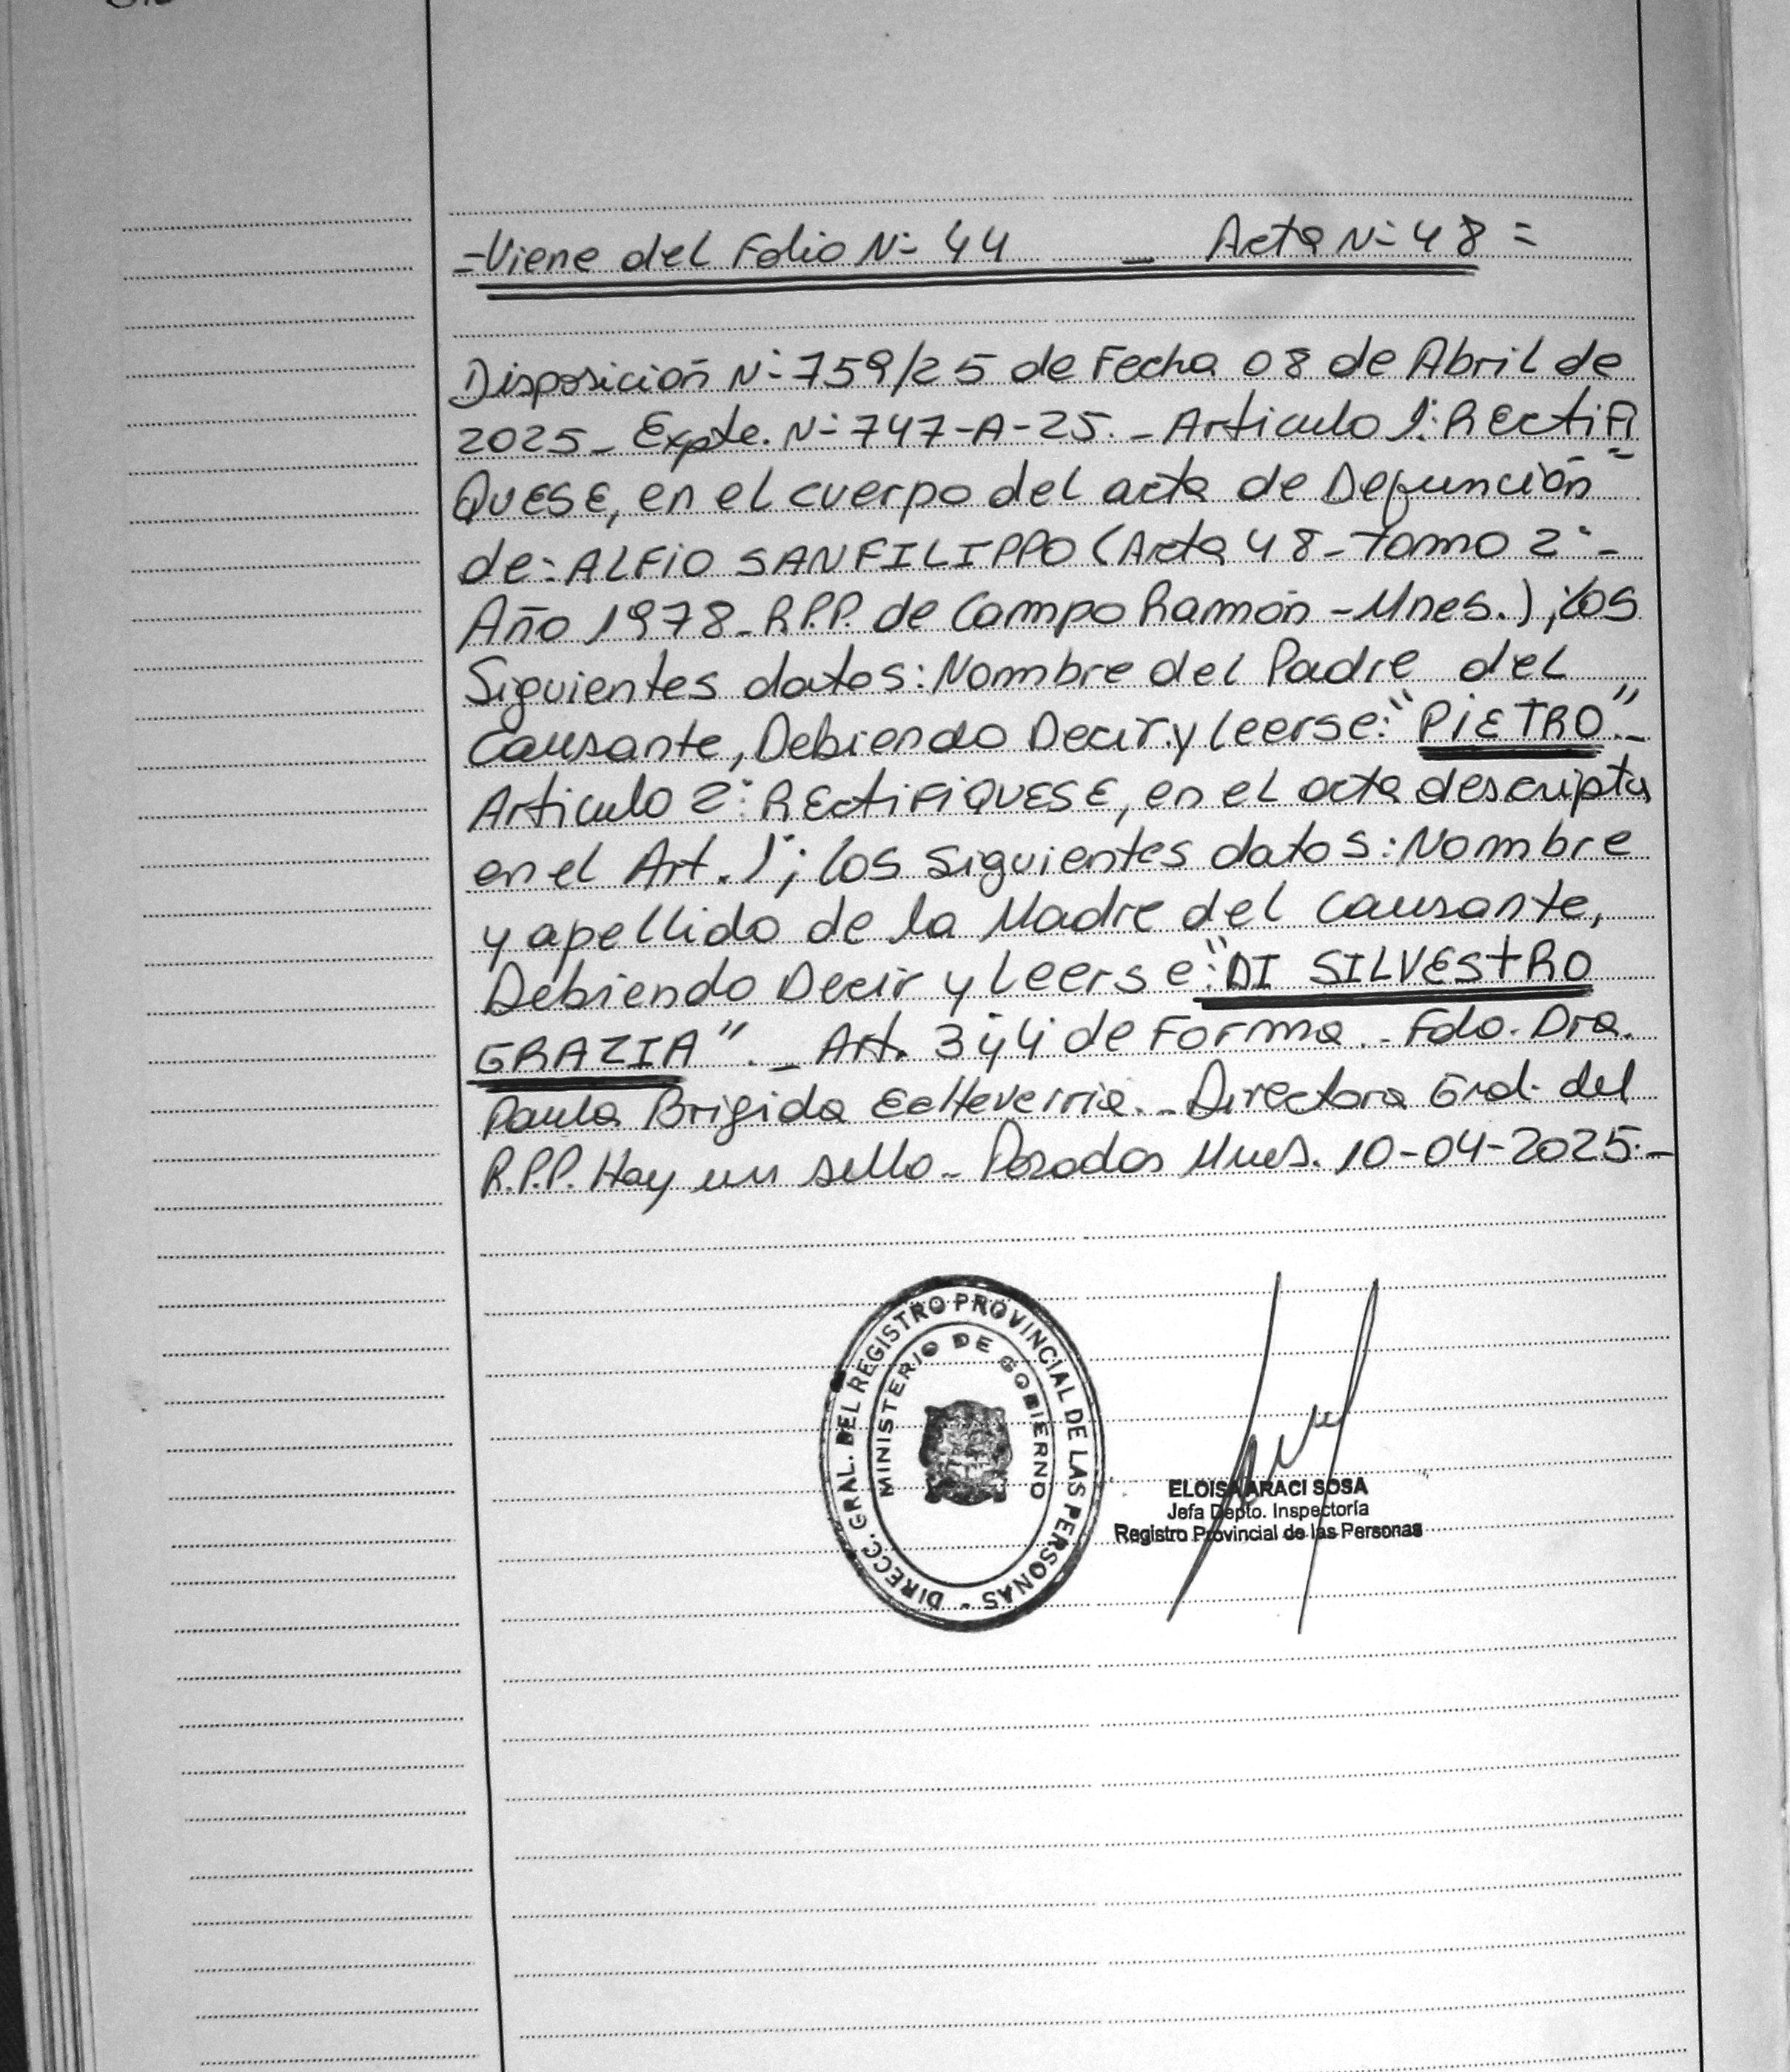 =Viene del Folio N- 44 _ Acta N- 48 =
Disposición N- 759/25 de Fecha 08 de Abril de
2025_ Expte. N- 747-A-25. _ Articulo 1: RECtiFi
QUESE, en el cuerpo del acta de Defunción
de: ALFiO SANFILIPPO (Acta 48_ tomo 2°-
Año 1978_ R.P.P. de Campo Ramón - Mnes.); los
Siguientes datos: Nombre del Padre del
causante, Debiendo Decir y leerse: "PiETRO"._
Articulo 2°: RECtiFiQUESE, en el acta descripta
en el Art. 1°; los siguientes datos: Nombre
y apellido de la Madre del causante,
Debiendo Decir y leerse: "DI SILVEStRO
GRAZIA"._ Art. 3 y 4 de Forma._ Fdo. Dra.
Paula Brigida Echeverria._ Directora Gral. del
R.P.P. Hay un sello_ Posadas Mnes. 10-04-2025._
DIRECC. GRAL. DEL REGISTRO PROVINCIAL DE LAS PERSONAS -
MINISTERIO DE GOBIERNO
ELOISA ARACI SOSA
Jefa Depto. Inspectoría
Registro Provincial de las Personas